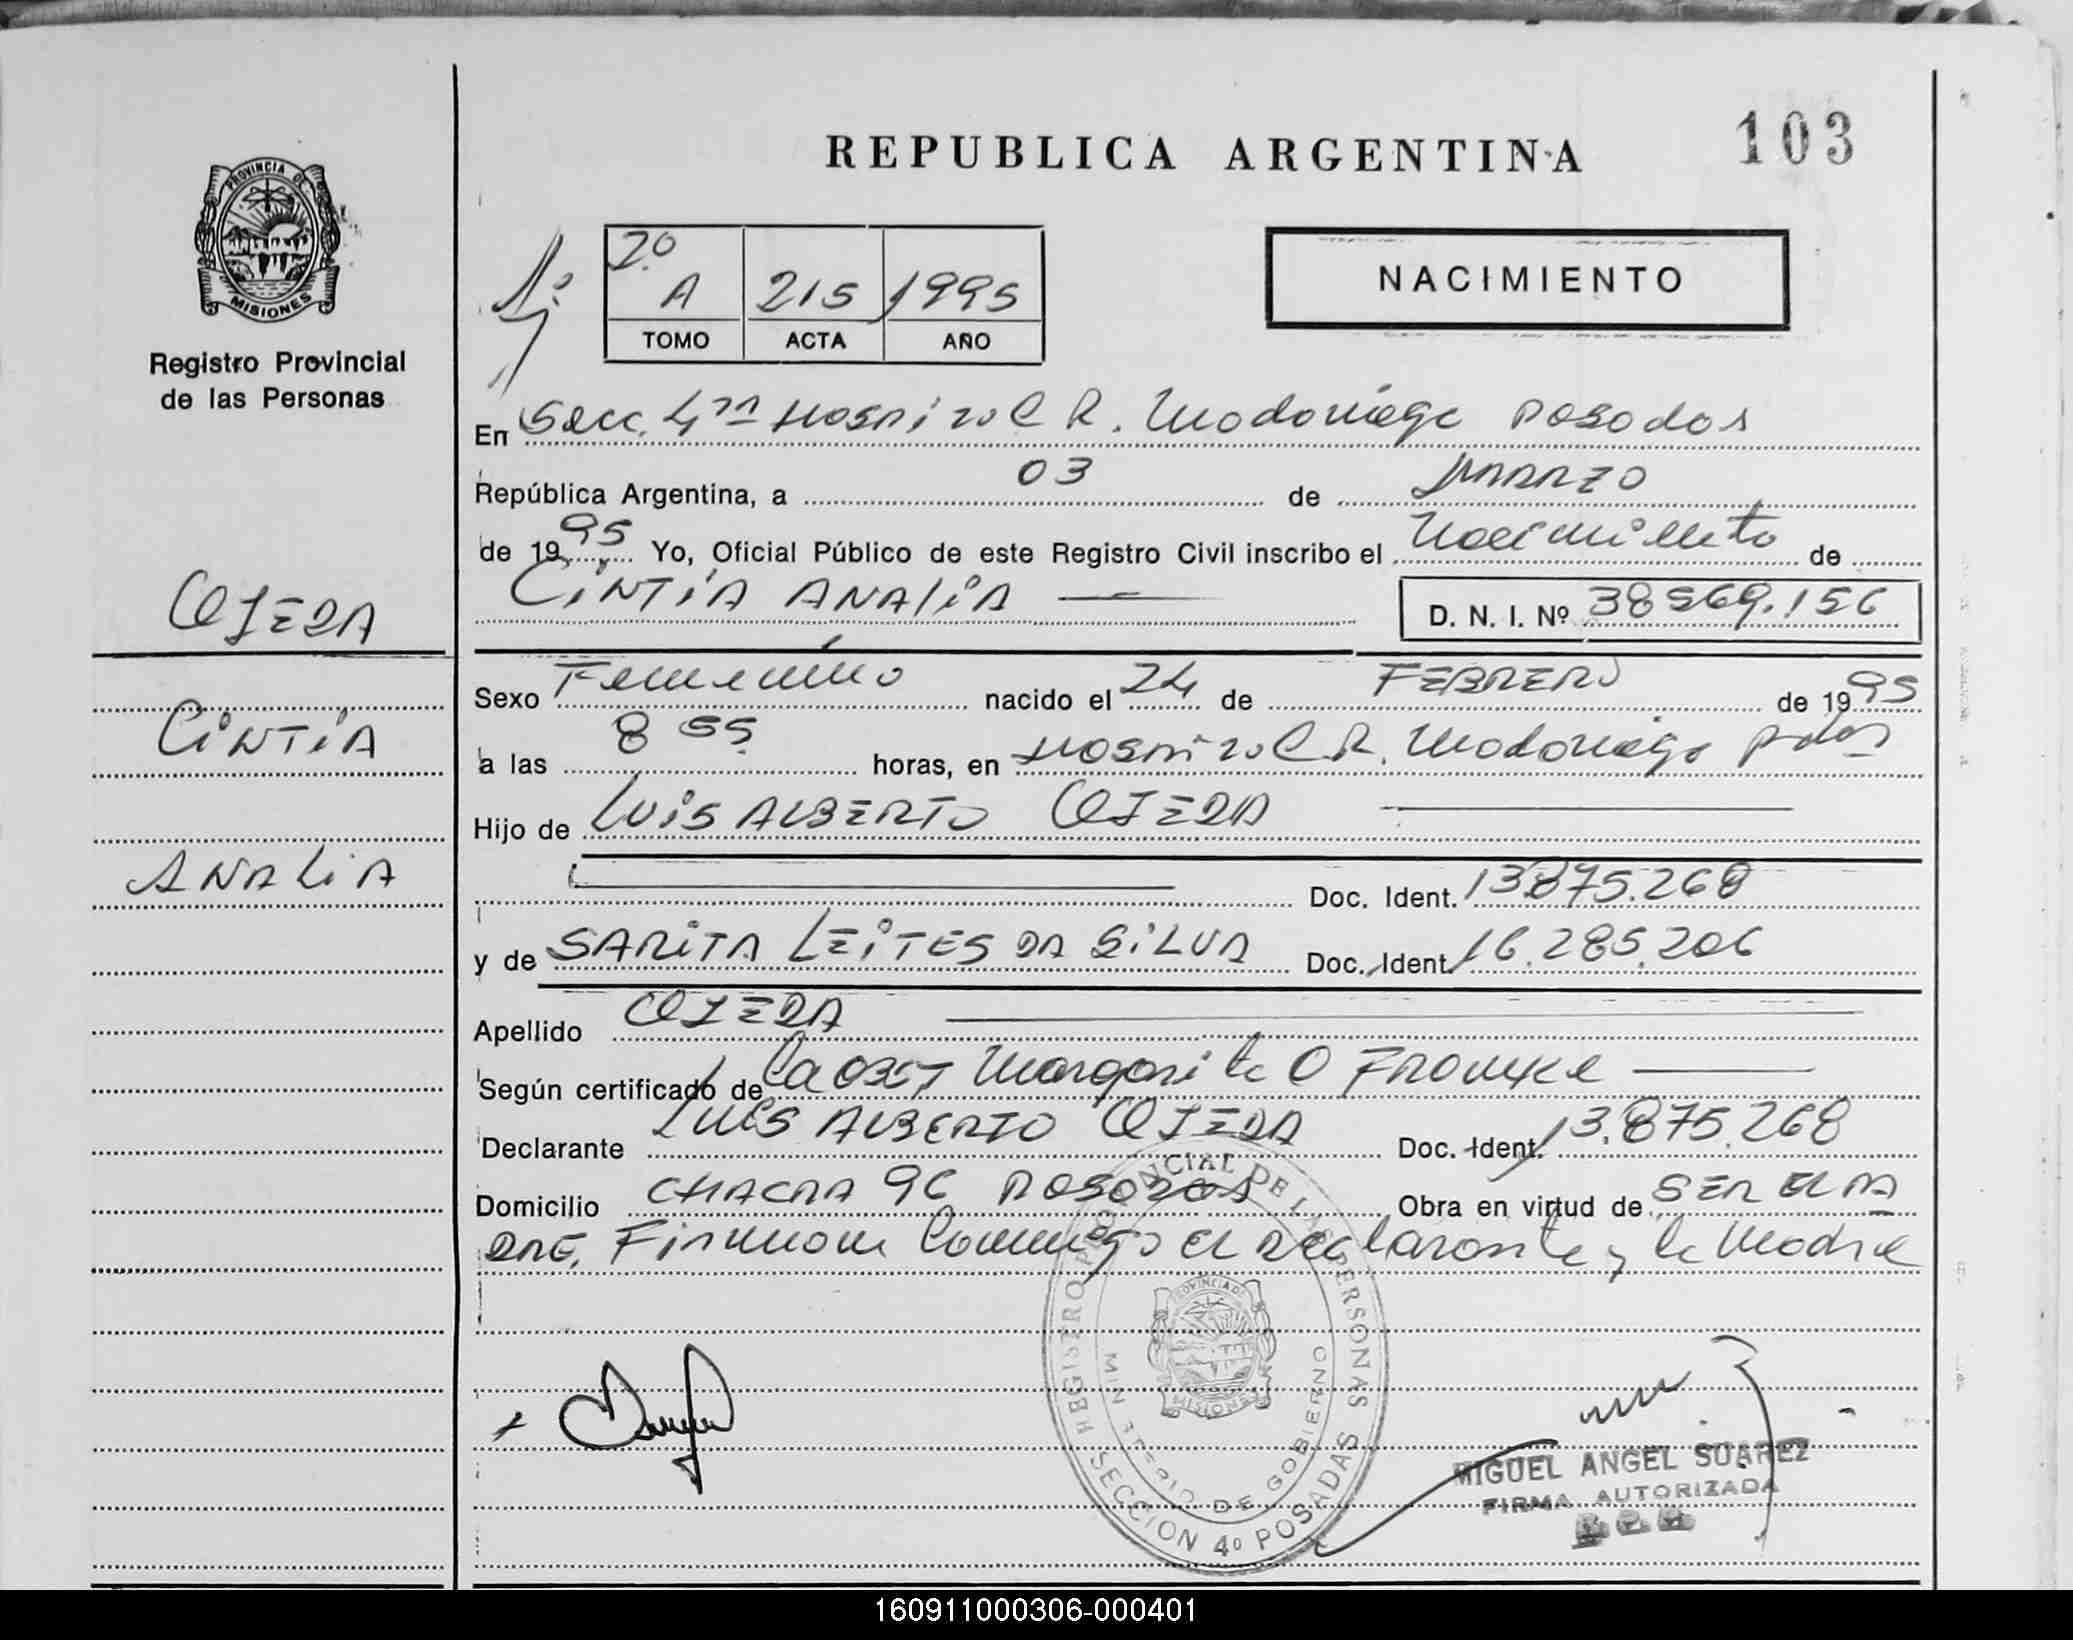 REPUBLICA ARGENTINA
103
PROVINCIA DE
MISIONES
Registro Provincial
de las Personas
2º
A 215 1995
TOMO ACTA AÑO
NACIMIENTO
En Secc. 4ta Hospital R. Madariaga Posadas
República Argentina, a 03 de MARZO
de 1995 Yo, Oficial Público de este Registro Civil inscribo el Nacimiento de
CINTIA ANALIA D. N. I. Nº 38569.156
OJEDA
CINTIA
ANALIA
Sexo Femenino nacido el 24 de FEBRERO de 1995
a las 8 55 horas, en Hospital R. Madariaga Pdas
Hijo de LUIS ALBERTO OJEDA
Doc. Ident. 13875.268
y de SARITA LEITES DA SILVA Doc. Ident. 16.285.206
Apellido OJEDA
Según certificado de La OBST Margarita O
Declarante LUIS ALBERTO OJEDA Doc. Ident. 13.875.268
Domicilio CHACRA 96 POSADAS Obra en virtud de SER EL PA
DRE. Firman Conmigo el Declarante y la Madre
REGISTRO PROVINCIAL DE LAS PERSONAS
MINISTERIO DE GOBIERNO
PROVINCIA DE
MISIONES
SECCION 4º POSADAS
MIGUEL ANGEL SUAREZ
FIRMA AUTORIZADA
160911000306-000401